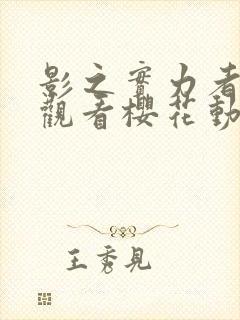 影之實力者
觀看櫻花動
王秀見